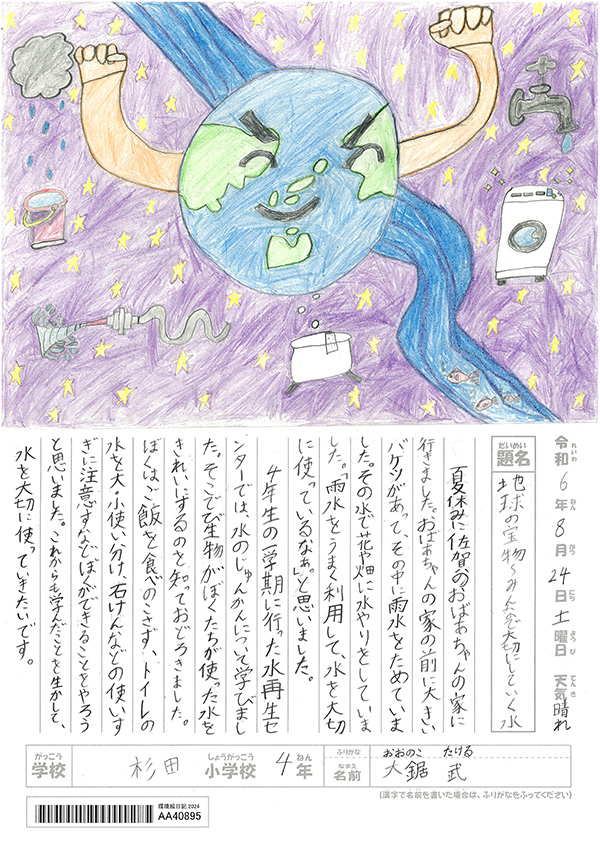 令和6年8月24日土曜日 天気 晴れ
れいわ ねん がつ にち ようび てんき
だいめい
題名
地球の宝物~みんなで大切にしていく水
夏休みに佐賀のおばあちゃんの家に
行きました。おばあちゃんの家の前に大きい
バケツがあって、その中に雨水をためていま
した。その水で花や畑に水やりをしていま
した。「雨水をうまく利用して、水を大切
に使っているなぁ。」と思いました。
4年生の一学期に行った水再生セ
ンターでは、水のじゅんかんについて学びまし
た。そこでび生物がぼくたちが使った水を
きれいにするのを知っておどろきました。
ぼくはご飯を食べのこさず、トイレの
水を大・小使い分け、石けんなどの使いす
ぎに注意するなどぼくができることをやろう
と思いました。これからも学んだことを生かして、
水を大切に使っていきたいです。
がっこう
学校
杉田
しょうがっこう
小学校
4
ねん
年
ふりがな
おおのこ たける
なまえ
名前
大鋸 武
(漢字で名前を書いた場合は、ふりがなをふってください)
環境絵日記2024
AA40895